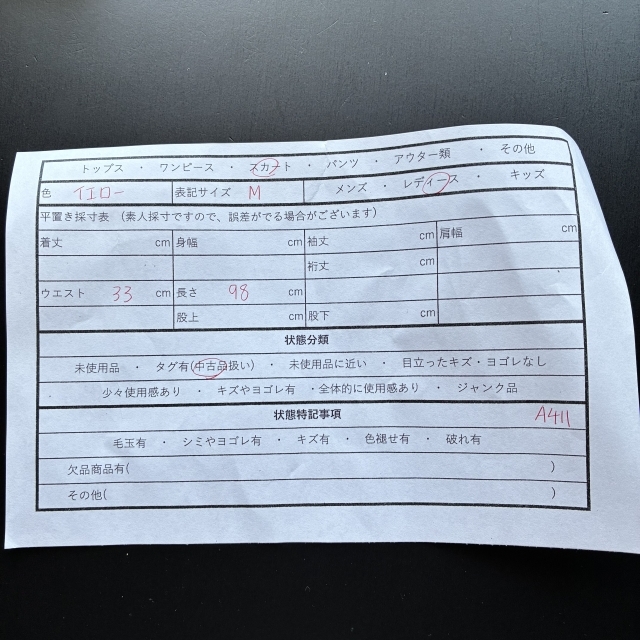 トップス ・ ワンピース ・ スカート ・ パンツ ・ アウター類 ・ その他
色 イエロー 表記サイズ M メンズ ・ レディース ・ キッズ
平置き採寸表 (素人採寸ですので、誤差がでる場合がございます)
着丈 cm 身幅 cm 袖丈 cm 肩幅 cm
裄丈 cm
ウエスト 33 cm 長さ 98 cm
股上 cm 股下 cm
状態分類
未使用品 ・ タグ有(中古品扱い) ・ 未使用品に近い ・ 目立ったキズ・ヨゴレなし
少々使用感あり ・ キズやヨゴレ有 ・全体的に使用感あり ・ ジャンク品
状態特記事項 A411
毛玉有 ・ シミやヨゴレ有 ・ キズ有 ・ 色褪せ有 ・ 破れ有
欠品商品有( )
その他( )